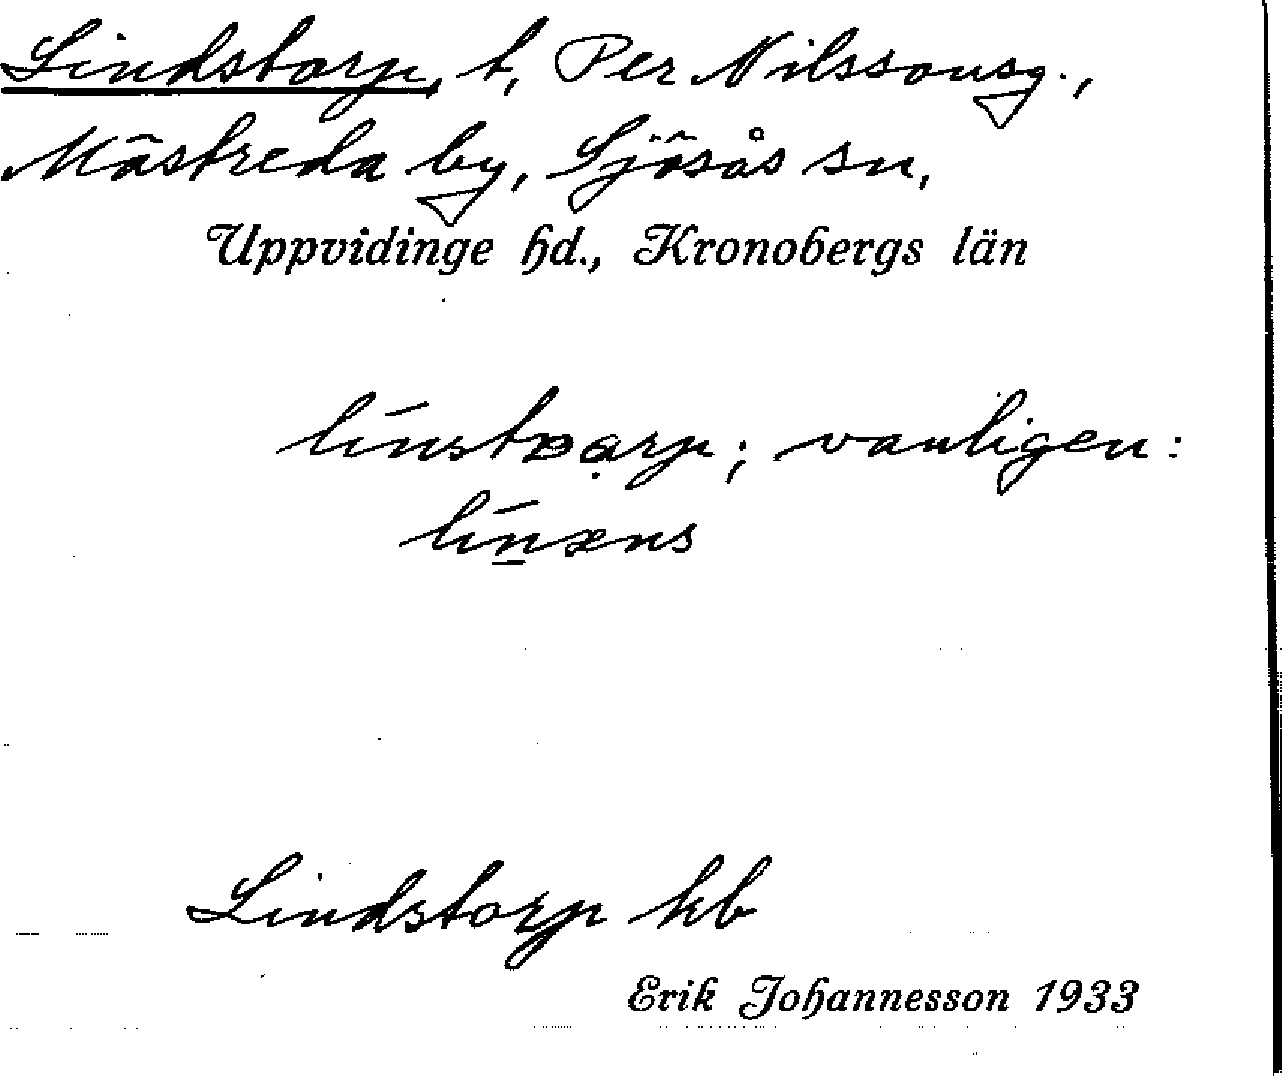 Lindstorp, t, Per Nilssonsg.,
Mästreda by, Sjösås sn,
Uppvidinge hd., Kronobergs län
vanligen:
Lindstorp kb
Erik Johannesson 1933